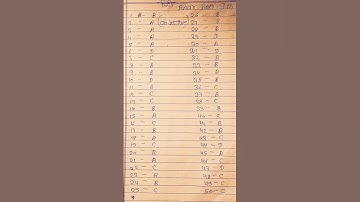 1 - B 26 - B
2 - A 27 - B
3 - A 28 - B
4 - A 29 - D
5 - A 30 - A
6 - D 31 - D
7 - C 32 - A
8 - A 33 - B
9 - A 34 - A
10 - D 35 - A
11 - B 36 - C
12 - C 37 - A
13 - C 38 - C
14 - B 39 - B
15 - A 40 - C
16 - C 41 - A
17 - B 42 - B
18 - A 43 - C
19 - C 44 - D
20 - A 45 - A
21 - A 46 - C
22 - C 47 - D
23 - A 48 - C
24 - B 49 - C
25 - C 50 - C